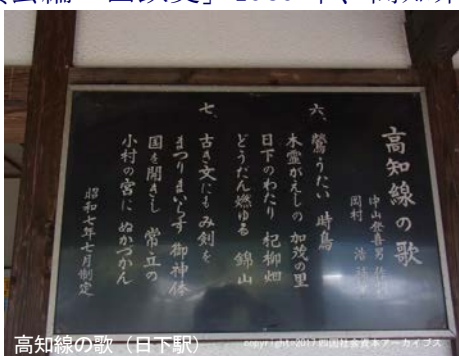 高知線の歌
岡村
六、鶯うたい 時鳥
木霊がえしの 加茂の里
日下のわたり 杞柳畑
どうだん燃ゆる 錦山
七、古き文にも み剣を
まつりまいらす 御神体
国を開きし 常立の
小村の宮に ぬかづかん
昭和七年七月制定
高知線の歌（日下駅）
copyright©2017四国社会資本アーカイブス